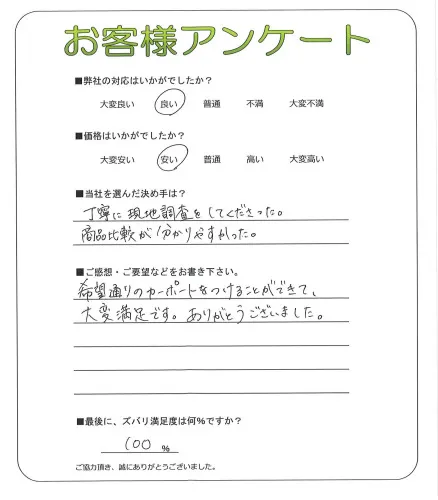 お客様アンケート
■弊社の対応はいかがでしたか？
大変良い 良い 普通 不満 大変不満
■価格はいかがでしたか？
大変安い 安い 普通 高い 大変高い
■当社を選んだ決め手は？
丁寧に現地調査をしてくださった。
商品比較が分かりやすかった。
■ご感想・ご要望などをお書き下さい。
希望通りのカーポートをつけることができて、
大変満足です。ありがとうございました。
■最後に、ズバリ満足度は何％ですか？
100 %
ご協力頂き、誠にありがとうございました。